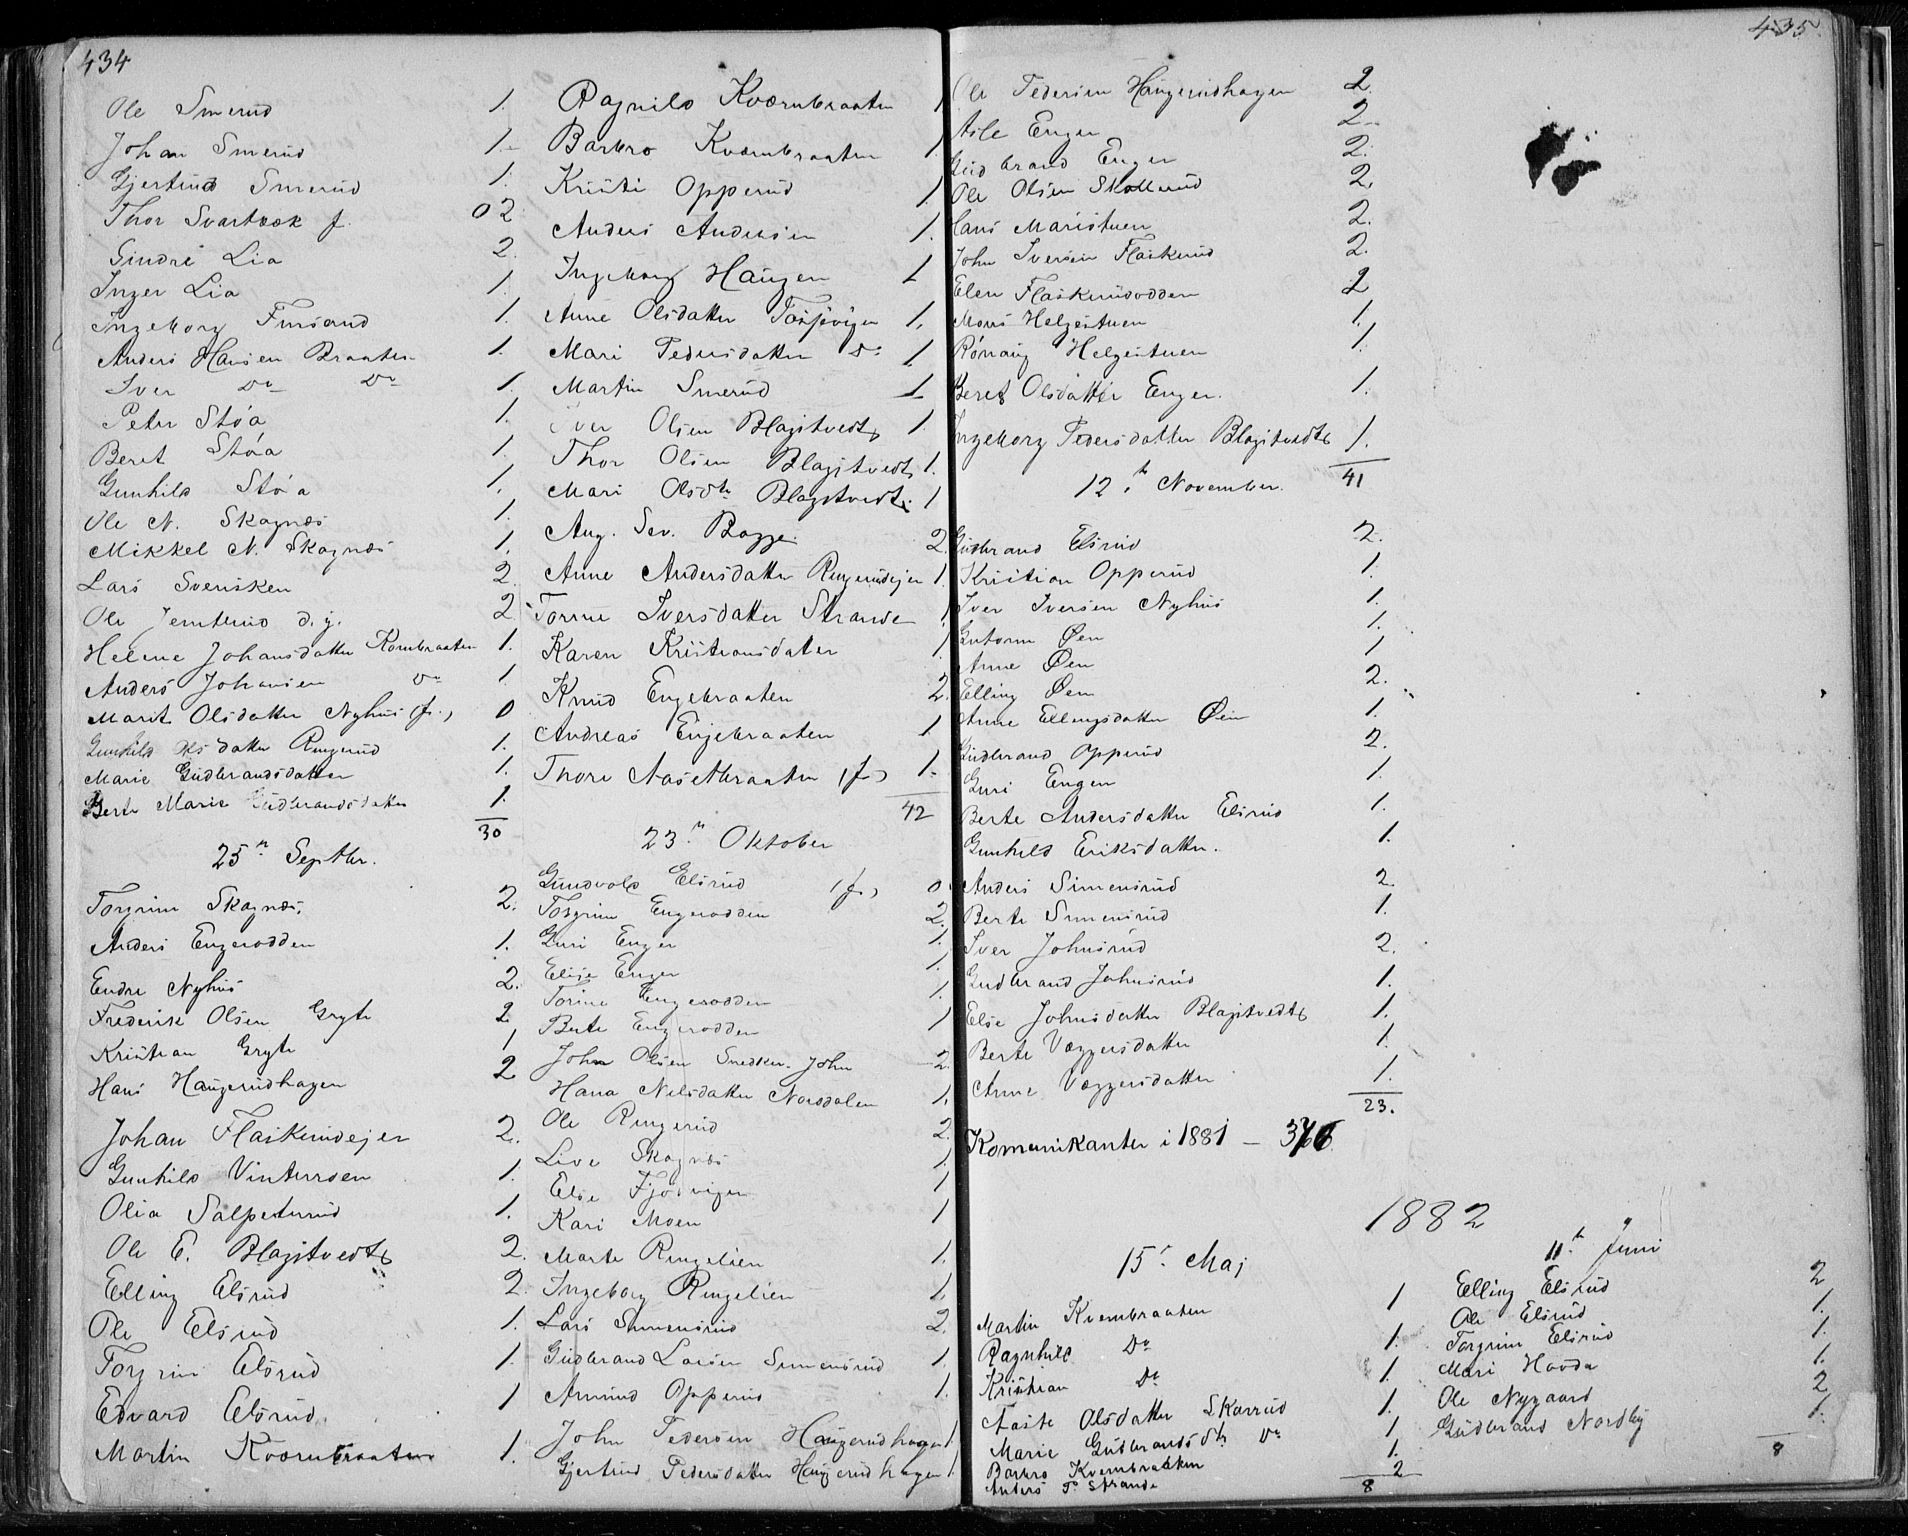 434
Ole Smerud 1.
Johan Smerud 1.
Gjertrud Smerud 1.
Thor Svartbæk f. 02
Sindre Lia 2.
Inger Lia 1.
Ingeborg Fursand 1.
Anders Hansen Braaten 1.
Iver Do Do 1.
Peter Støa 1.
Beret Støa 1.
Gunhild Støa 1.
Ole N. Skagnæs 1.
Mikkel N. Skagnæs 1.
Lars Svensken 2.
Ole Jemterud d.y. 2
Helene Johansdatter Kornbraaten 1.
Anders Johansen Do 1.
Marit Olsdatter Nyhus (f.) 0
Gunhild Olsdatter Ringerud 1.
Marie Gudbrandsdatter 1.
Berte Marie Gudbrandsdatter 1.
30
25n Septbr.
Torgrim Skagnæs 2.
Anders Engerodden 1.
Endre Nyhus 2.
Frederik Olsen Gryte 2
Kristian Gryte 1
Hans Haugerudhagen 2
Johan Flaskerudejer 2.
Gunhild Vinterroen 1.
Olia Salpeterud 1.
Ole E. Blagstvedt 2.
Elling Elsrud 2.
Ole Elsrud 1.
Torgrim Elsrud 1.
Edvard Elsrud 1
Martin Kværnbraaten 1.
Ragnild Kværnbraaten 1
Barbro Kværnbraaten 1
Kristi Opperud 1
Anders Andersen 1.
Ingeborg Haugen 1
Anne Olsdatter Fosjøvigen 1.
Mari Pedersdatter Do 1
Martin Smerud 1
Iver Olsen Blagstvedt 1.
Thor Olsen Blagstvedt 1.
Mari Olsdtr Blagstvedt 1
Aug. Sev. Bagge 2
Anne Andersdatter Ringerudejer 1.
Torine Iversdatter Strande 1
Karen Kristiansdatter 1
Knud Engebraaten 2
Andreas Engebraaten 1
Thore Aasetbraaten (f.) 1.
42
23n Oktober
Gundvold Elsrud (f.) 0
Torgrim Engerodden 2.
Guri Enger 1.
Elise Enger 1.
Torine Engerodden 1
Berte Engerodden 1
John Olsen Snedker-John 2.
Hana Nilsdatter Norddalen 1.
Ole Ringerud 2.
Live Skagnæs 1
Else Fjosvigen 1
Kari Moen 1
Marte Ringelien 1.
Ingeborg Ringelien 1.
Lars Simensrud 2.
Gudbrand Larsen Simensrud 1.
Amund Opperud 1.
John Pedersen Haugerudhagen 1.
Gjertrud Pedersdatter Haugerudhagen 1.
435.
Ole Pedersen Haugerudhagen 2.
Asle Enger 2
Gudbrand Enger 2.
Ole Olsen Skollerud 2.
Hans Maristuen 2.
John Iversen Flaskerud 2.
Elen Flaskerudodden 2
Mons Helgestuen 1.
Rønnaug Helgestuen 1.
Beret Olsdatter Enger. 1.
Ingeborg Pedersdatter Blagstvedt 1.
41
12.te November.
Gudbrand Elsrud 2.
Kristian Opperud 1.
Iver Iversen Nyhus 1.
Gutorm Øen 1.
Anne Øen 1
Elling Øen 2.
Anne Ellingsdatter Øen 1.
Gudbrand Opperud 2.
Guri Engen 1.
Berte Andersdatter Elsrud 1.
Gunhild Eriksdatter. 1.
Anders Simensrud 2.
Berte Simensrud 1.
Iver Johnsrud 2.
Gudbrand Johnsrud 1.
Else Johnsdatter Blagstvedt 1.
Berte Væggersdatter 1.
Anne Væggersdatter 1.
23.
Komunikanter i 1881 – 376
1882
15. Maj
Martin Kvernbraaten 1
Ragnhild Do 1.
Kristian Do 1.
Aaste Olsdatter Skarrud 1.
Marie Gudbrandsdtr Do 1
Barbro Kvernbraaten 1.
Anders P. Strande 2
8
11.te Juni
Elling Elsrud 2
Ole Elsrud 1.
Torgrim Elsrud 1.
Mari Hovda 1.
Ole Nygaard 2
Gudbrand Nordby 1.
8